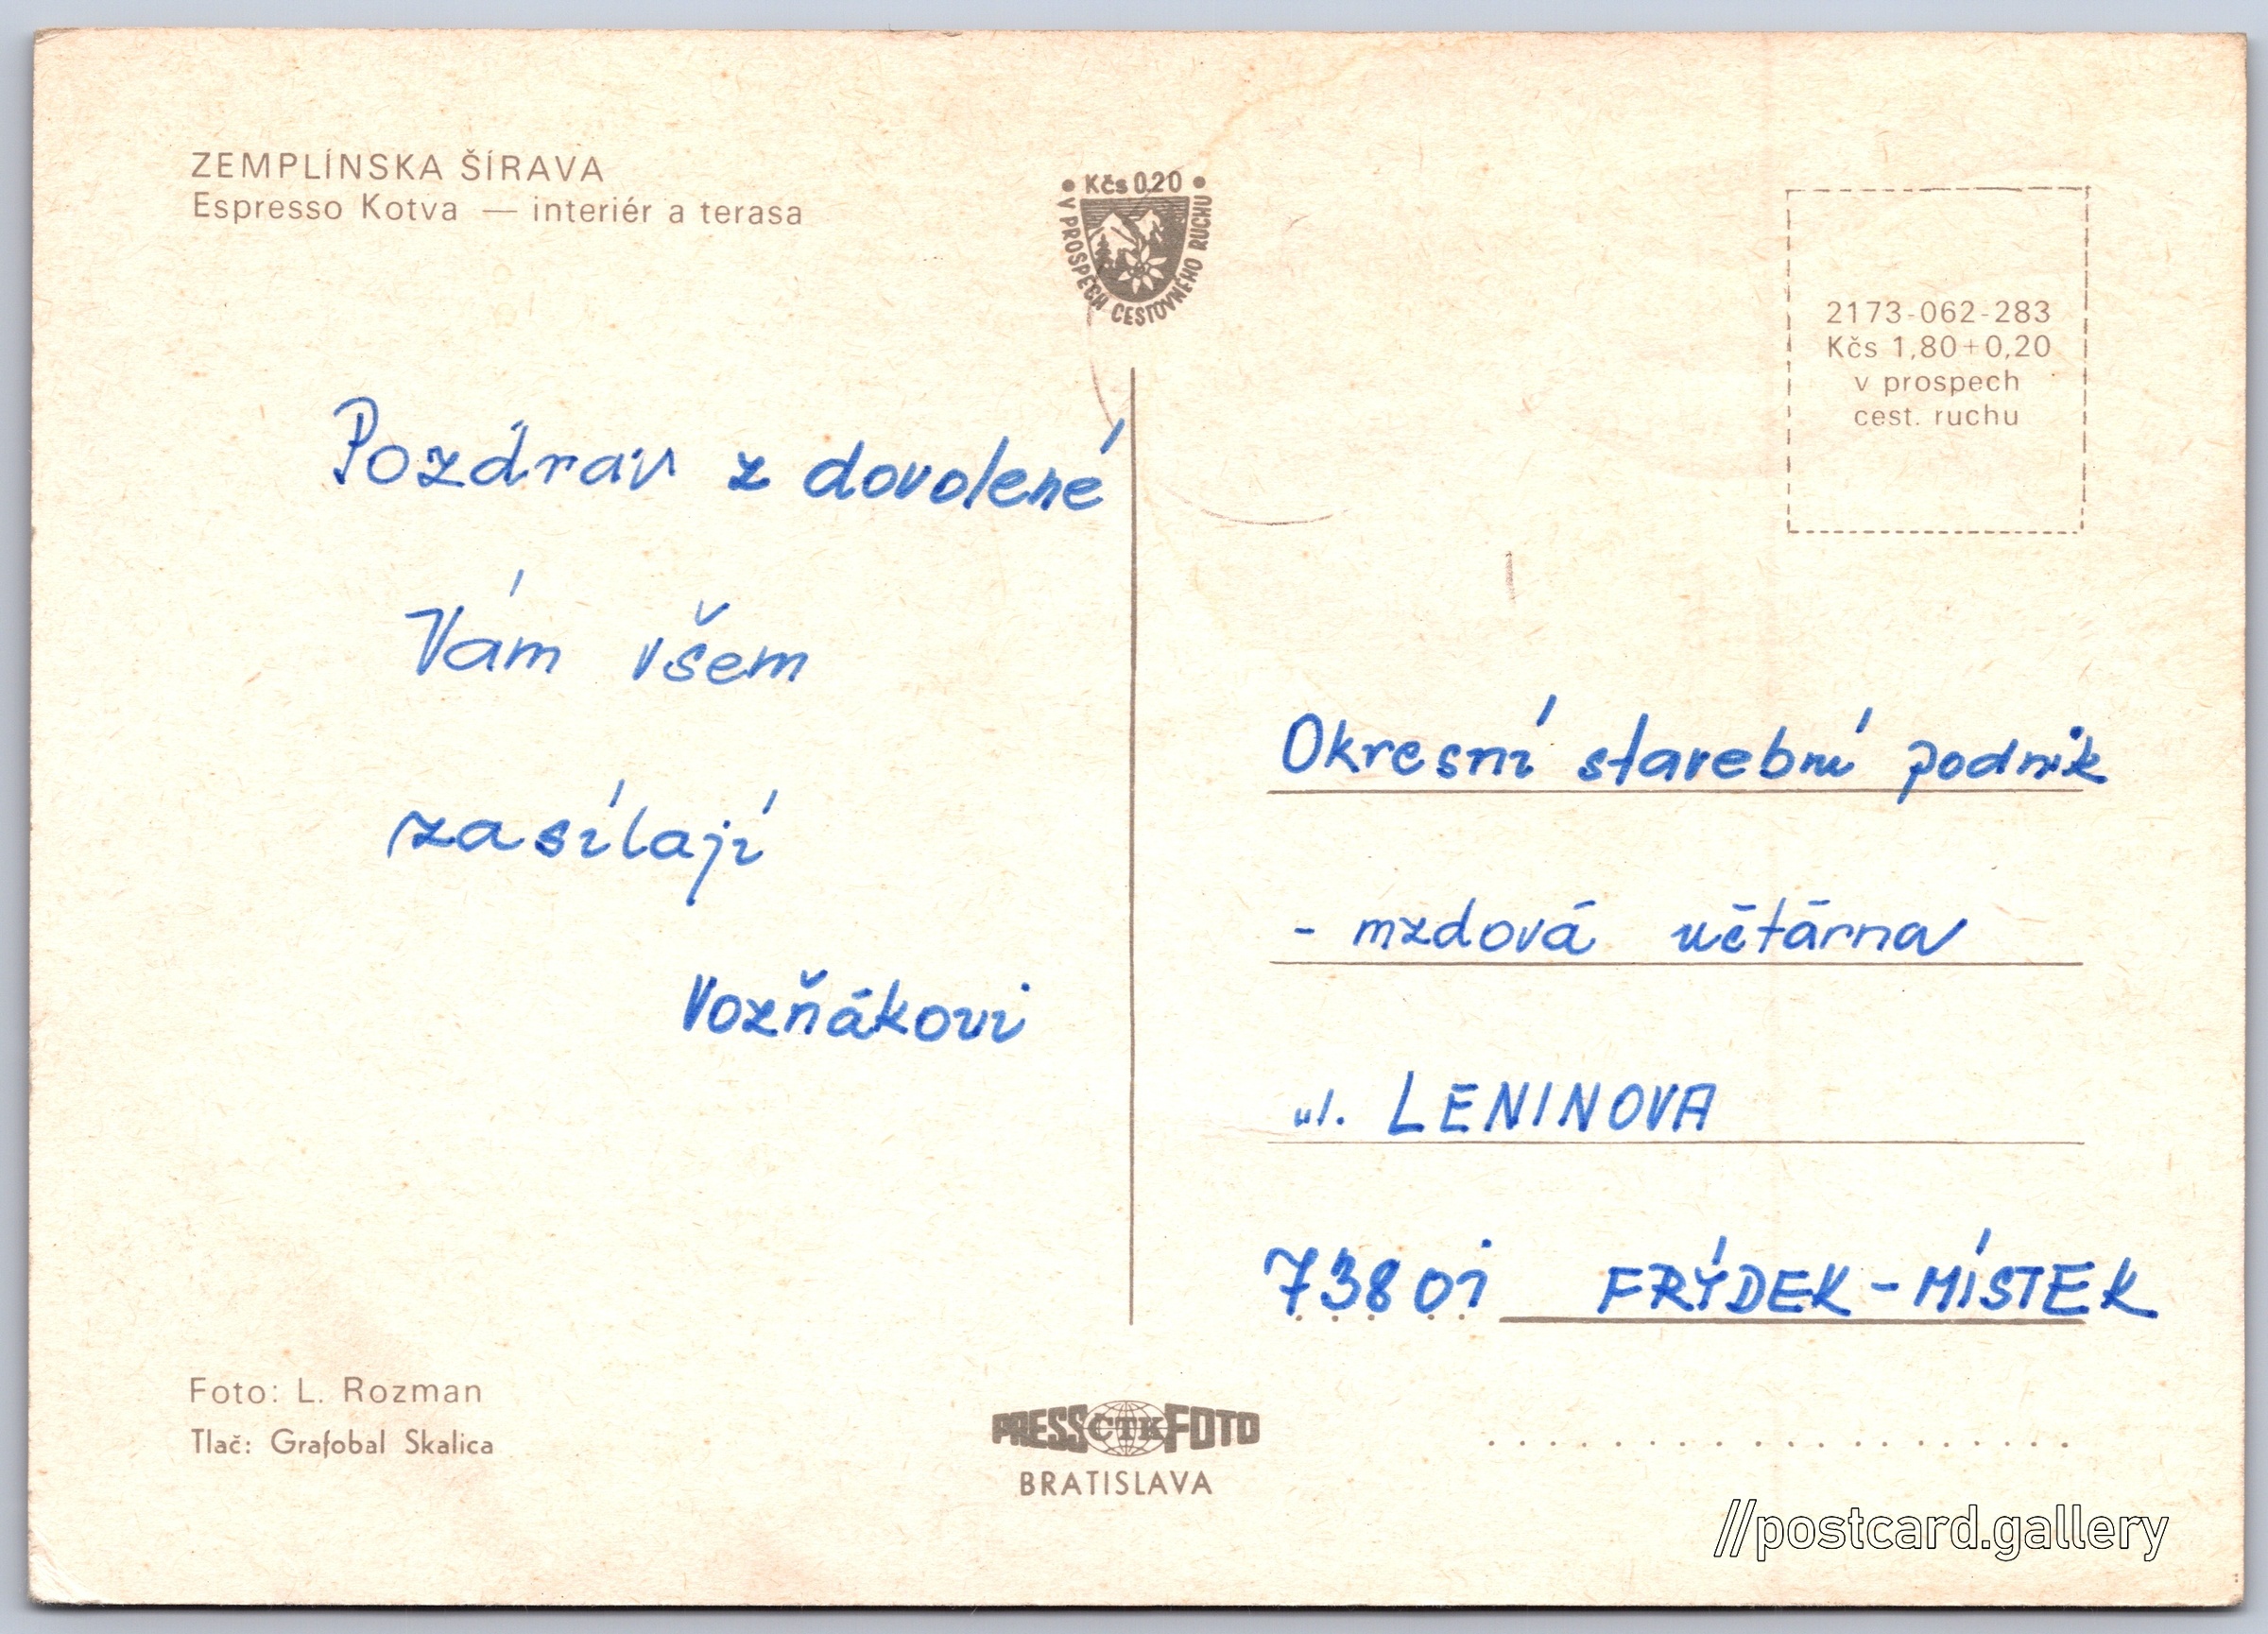 ZEMPLÍNSKA ŠÍRAVA
Espresso Kotva — interiér a terasa
• Kčs 0.20 •
V PROSPECH CESTOVNÉHO RUCHU
2173-062-283
Kčs 1,80+0,20
v prospech
cest. ruchu
Pozdrav z dovolené
Vám všem
zasílají
Vozňákovi
Okresní stavební podnik
- mzdová učtárna
ul. LENINOVA
73801 FRÝDEK-MÍSTEK
Foto: L. Rozman
Tlač: Grafobal Skalica
PRESS ČTK FOTO
BRATISLAVA
//postcard.gallery